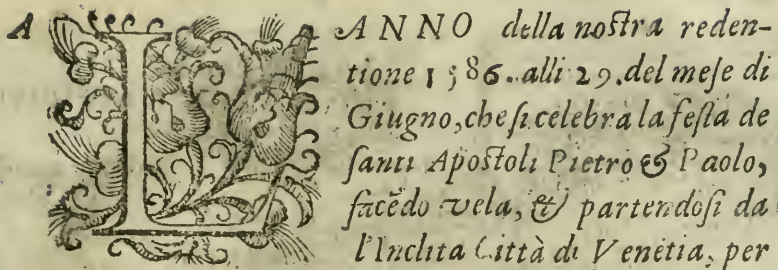 A L ANNO della noſtra reden-
tione 1586. alli 29. del meſe di
Giugno, che ſi celebra la feſta de
ſanti Apoſtoli Pietro & Paolo,
facēdo vela, & partendoſi da
l'Inclita Città di Venetia, per